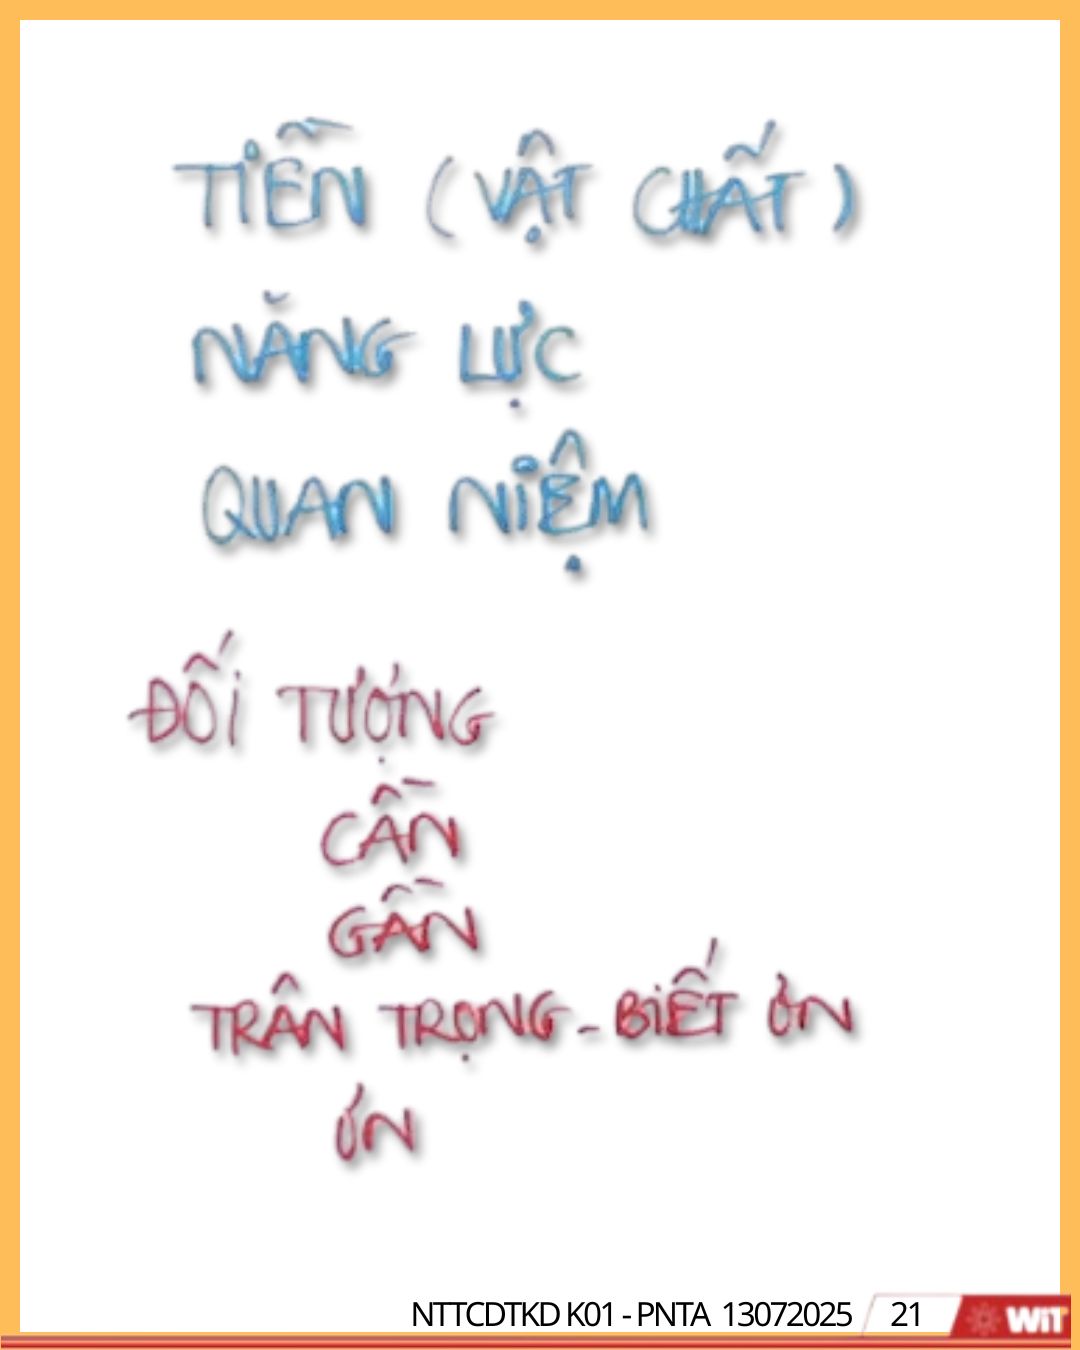 TIỀN (VẬT CHẤT)
NĂNG LỰC
QUAN NIỆM
ĐỐI TƯỢNG
CẦN
GẦN
TRÂN TRỌNG - BIẾT ƠN
ƠN
NTTCDTKD K01 - PNTA 13072025 21 WiT